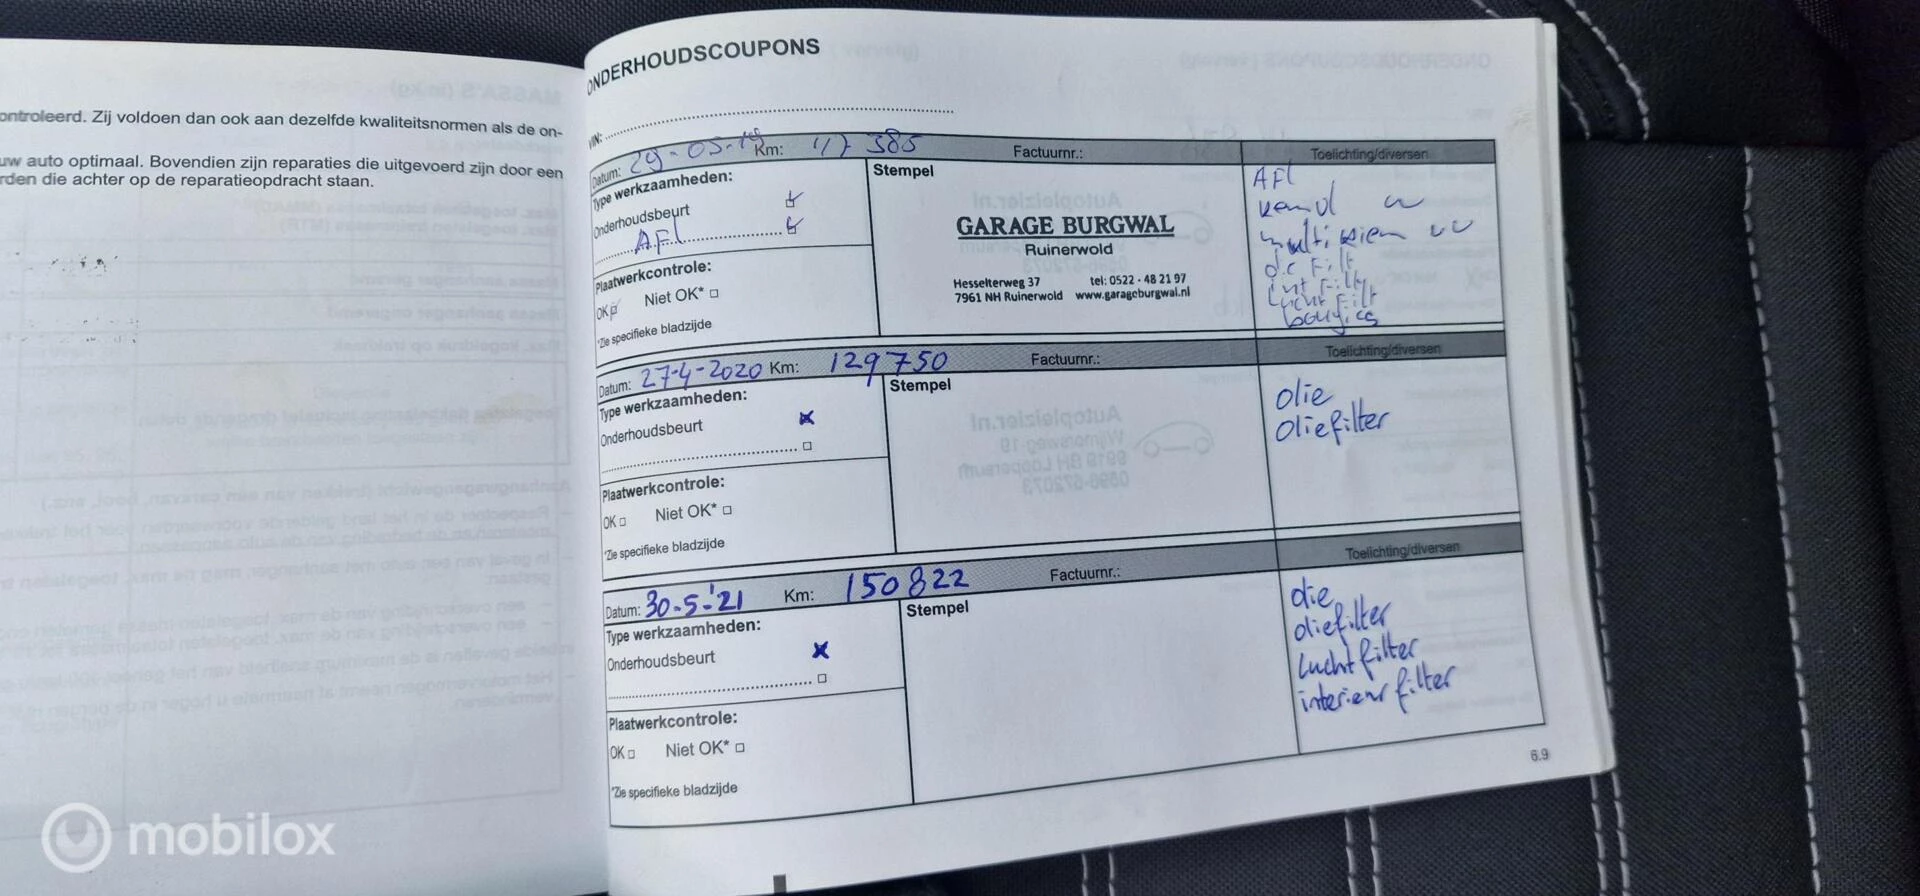 ontroleerd. Zij voldoen dan ook aan dezelfde kwaliteitsnormen als de on-
uw auto optimaal. Bovendien zijn reparaties die uitgevoerd zijn door een
rden die achter op de reparatieopdracht staan.
ONDERHOUDSCOUPONS
VIN:
Datum: 29-05-19 Km: 117 385 Factuurnr.: Toelichting/diversen
Type werkzaamheden:
Onderhoudsbeurt
AFL
Plaatwerkcontrole:
OK Niet OK*
*Zie specifieke bladzijde
Stempel
GARAGE BURGWAL
Ruinerwold
Hesselterweg 37 tel: 0522 - 48 21 97
7961 NH Ruinerwold www.garageburgwal.nl
AFL
multi riem
int Filt
Lucht Filt
bougies
Datum: 27-4-2020 Km: 129750 Factuurnr.: Toelichting/diversen
Type werkzaamheden:
Onderhoudsbeurt
Plaatwerkcontrole:
OK Niet OK*
*Zie specifieke bladzijde
Stempel
olie
oliefilter
Datum: 30-5-'21 Km: 150822 Factuurnr.: Toelichting/diversen
Type werkzaamheden:
Onderhoudsbeurt
Plaatwerkcontrole:
OK Niet OK*
*Zie specifieke bladzijde
Stempel
olie
oliefilter
luchtfilter
interieur filter
6.9
mobilox